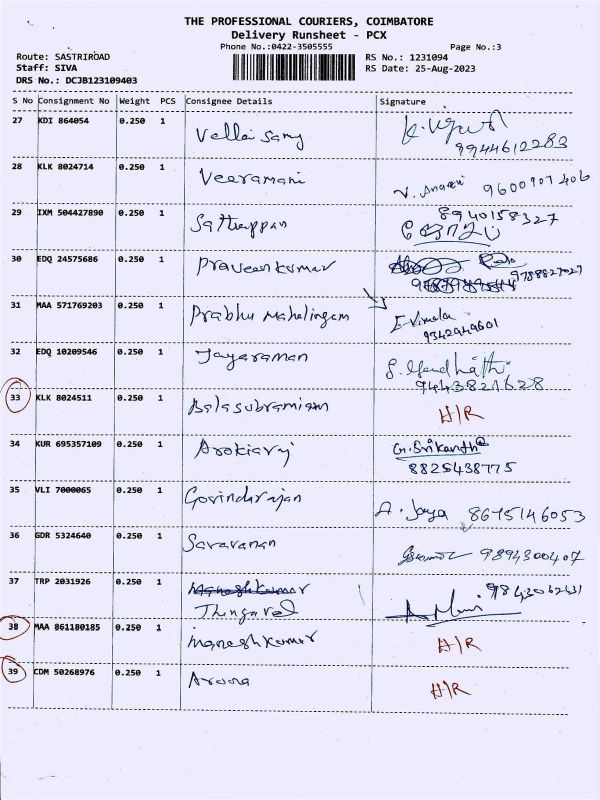 THE PROFESSIONAL COURIERS, COIMBATORE
Delivery Runsheet - PCX
Phone No.:0422-3505555 Page No.:3
Route: SASTRIROAD RS No.: 1231094
Staff: SIVA RS Date: 25-Aug-2023
DRS No.: DCJB123109403
S No Consignment No Weight PCS Consignee Details Signature
27 KDI 864054 0.250 1 Vellai Samy
9944612283
28 KLK 8024714 0.250 1 Veeramani
9600907406
29 IXM 504427890 0.250 1 Sathappan 8940158327
30 EDQ 24575686 0.250 1 Praveenkumar
9788827027
31 MAA 571769203 0.250 1 Prabhu Mahalingam E. Vimala
9342949601
32 EDQ 10209546 0.250 1 Jayaraman
9443821628
33 KLK 8024511 0.250 1 Balasubramiam H/R
34 KUR 695357109 0.250 1 Arokiaraj G. Srikanth
8825438775
35 VLI 7000065 0.250 1 Govindarajan A. Jaya 8675146053
36 GDR 5324640 0.250 1 Saravanan 9894300407
37 TRP 2031926 0.250 1 Manoshkumar
Thngavel
38 MAA 861180185 0.250 1 Maneshkumar H/R
39 CDM 50268976 0.250 1 Aroona H/R